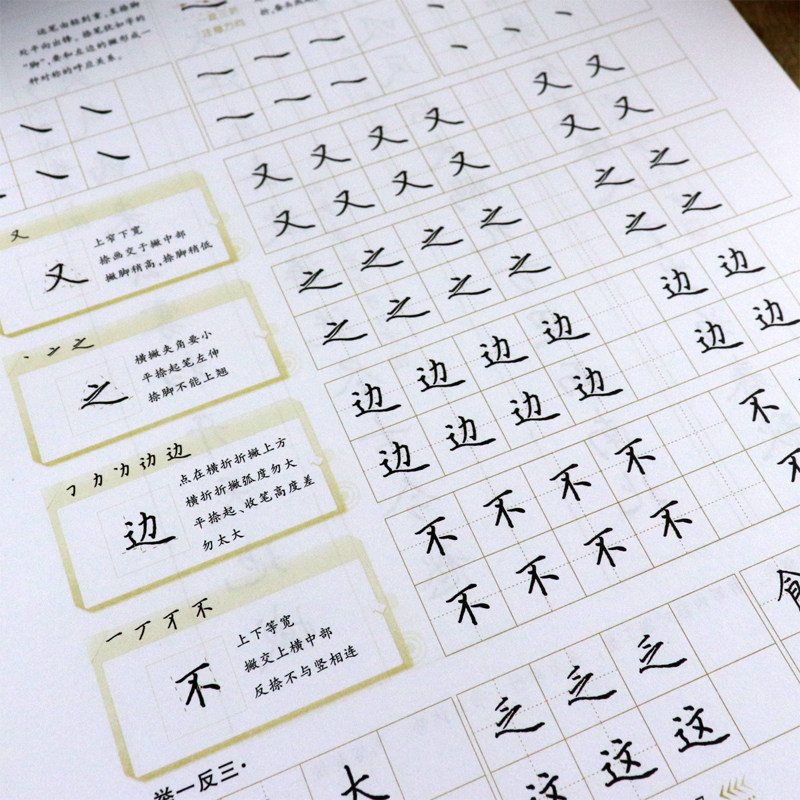 这笔由轻到重,至捺脚
处平向出锋。捺笔就如字的
"脚",要和左边的撇形成一
种对称的呼应关系。
注意方向
又
又
上窄下宽
捺画交于撇中部
撇脚稍高,捺脚稍低
又 又 又 又 又 又
又 又 又 又 又 又
之
横撇夹角要小
平捺起笔左伸
捺脚不能上翘
之 之 之 之 之 之
之 之 之 之 之 之
边
边
点在横折折撇上方
横折折撇弧度勿大
平捺起、收笔高度差
勿太大
边 边 边 边 边 边
边 边 边 边 边 边
一 丆 不 不
不
上下等宽
撇交上横中部
反捺不与竖相连
不 不 不 不 不
不 不 不 不
举一反三·
大
这 这 这